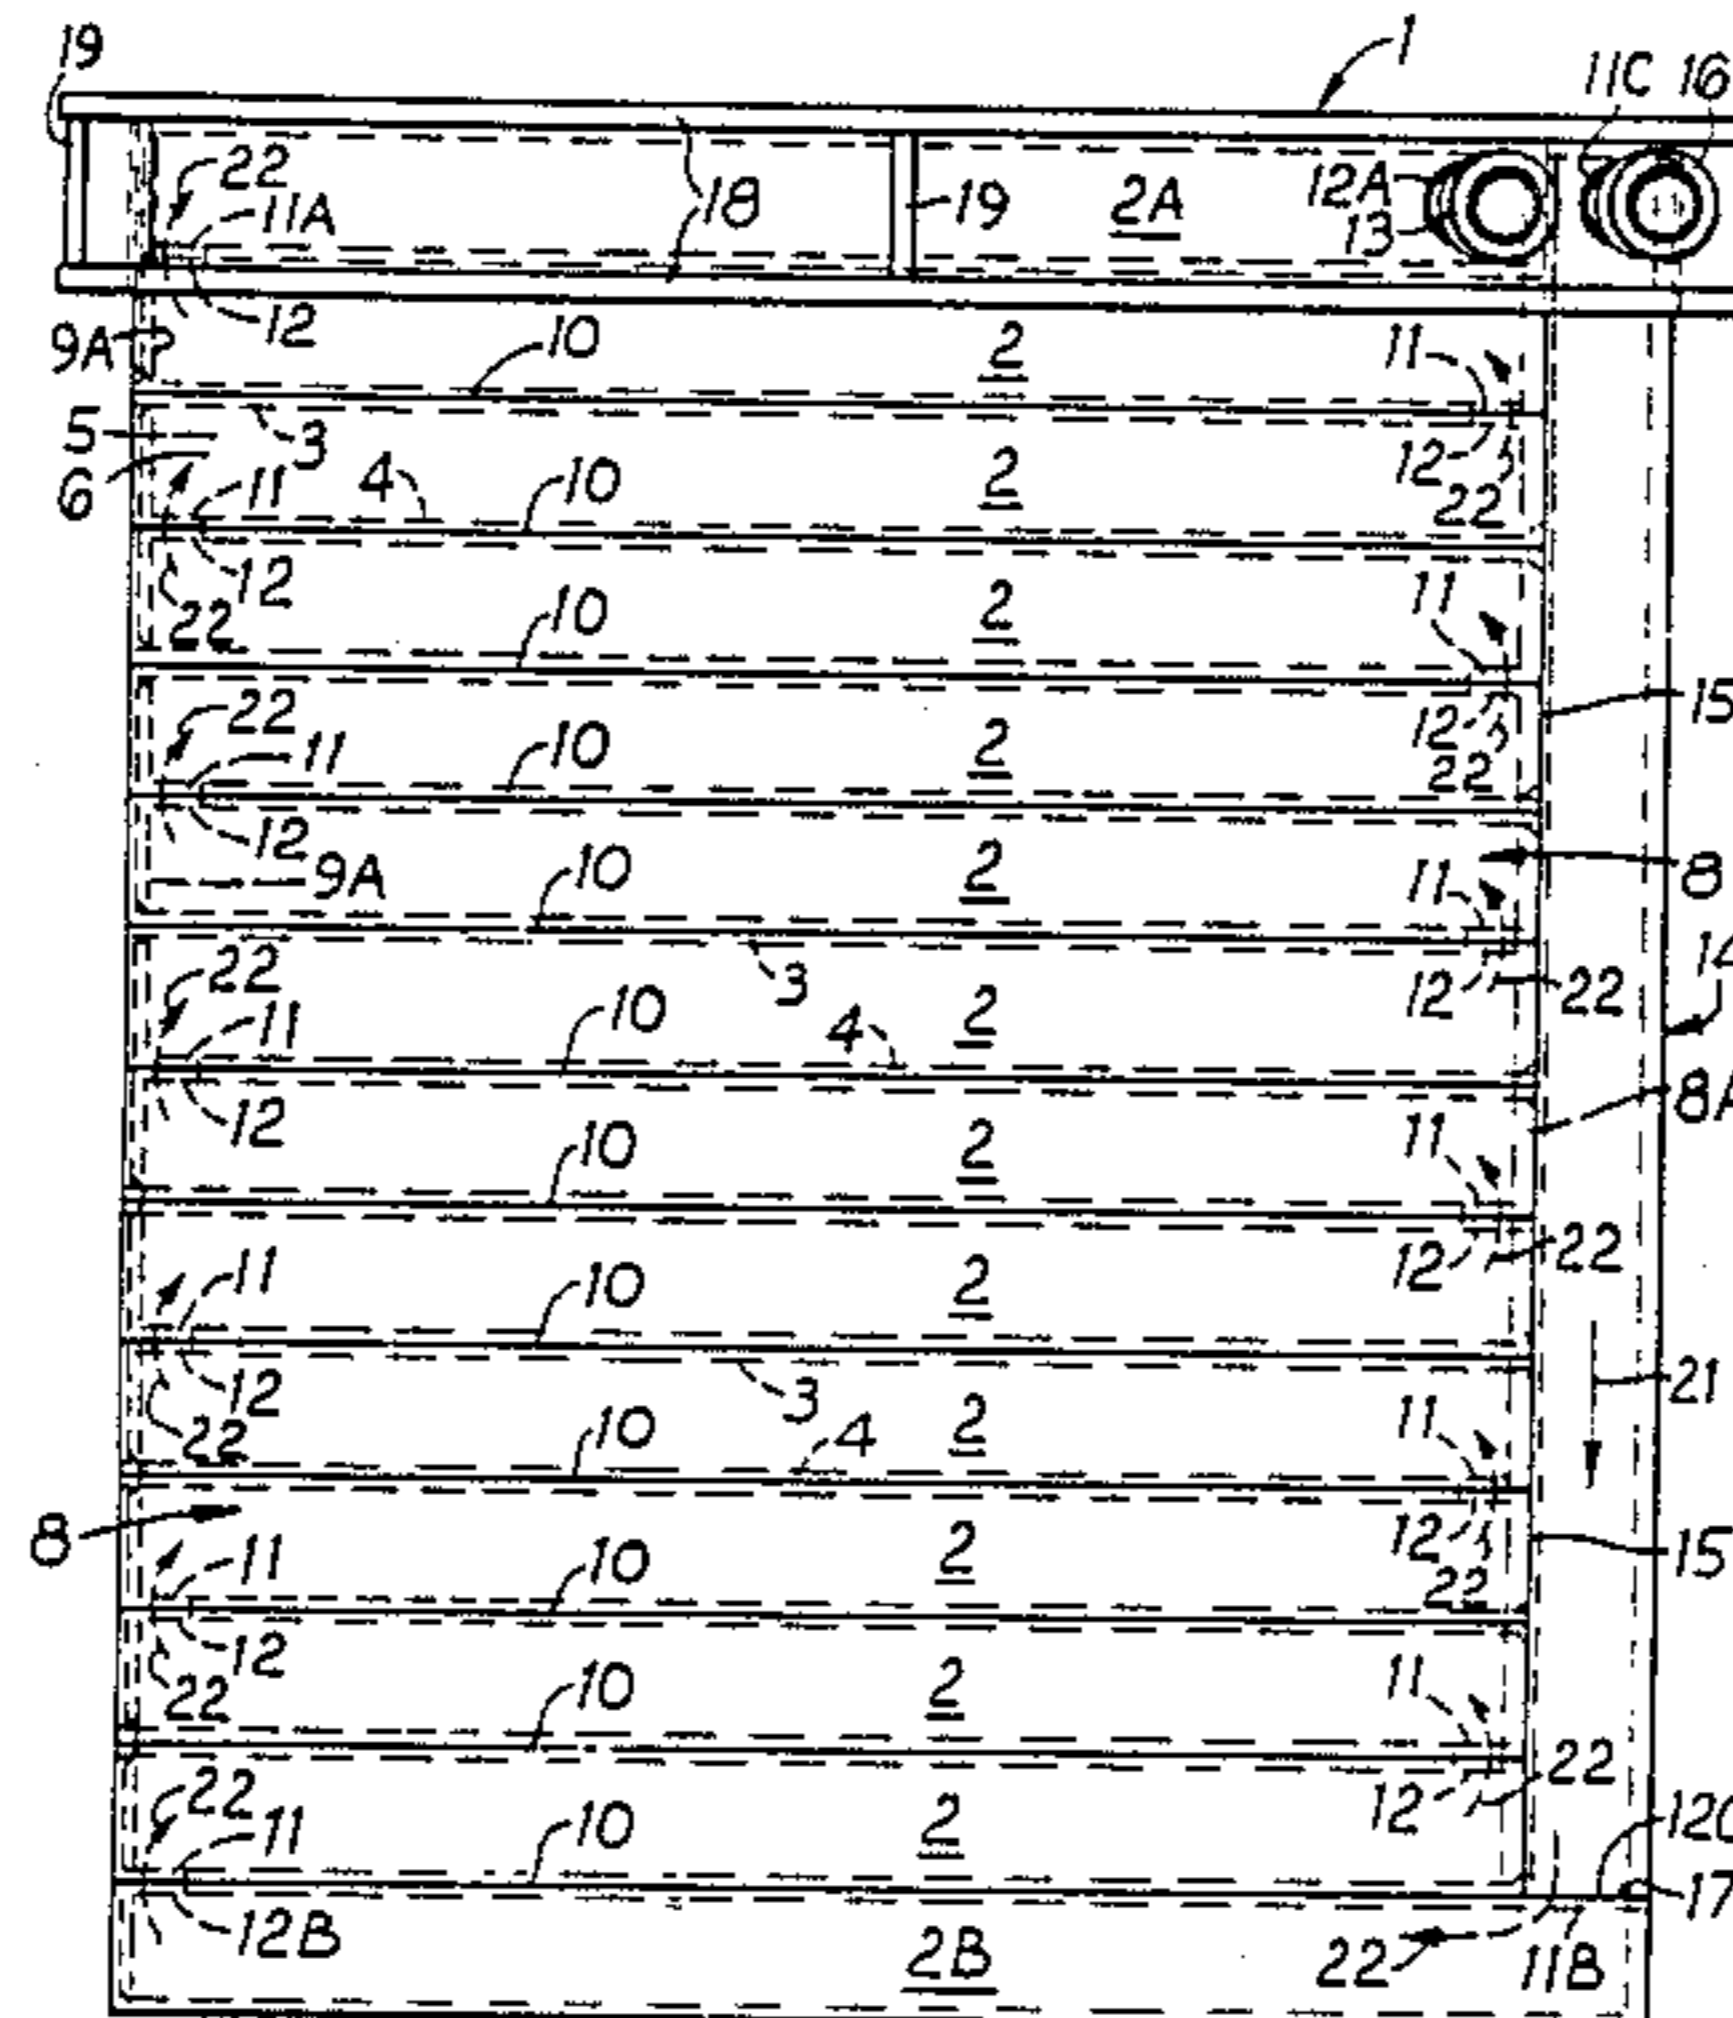 19
1
11C
16
22
11A
18
19
2A
12A
13
12
9A
10
2
11
5
6
3
12
11
4
10
2
22
12
22
10
2
11
22
11
10
2
12
22
12
9A
10
2
11
15
8
22
3
12
22
14
11
10
4
2
12
10
2
11
8A
11
10
2
12
22
12
22
3
10
4
2
11
21
8
11
10
2
12
22
15
12
22
10
2
11
22
11
10
2
12
22
12B
2B
22
11B
17